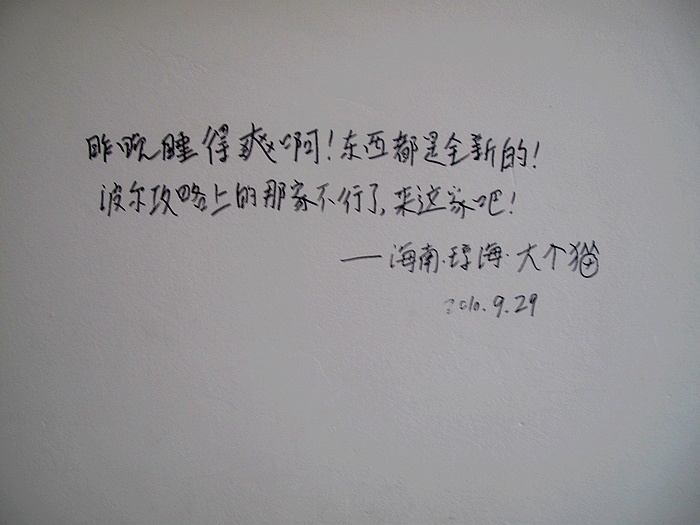 昨晚睡得爽啊!东西都是全新的!
波尔攻略上的那家不行了,来这家吧!
——海南·琼海·大个猫
2010.9.29